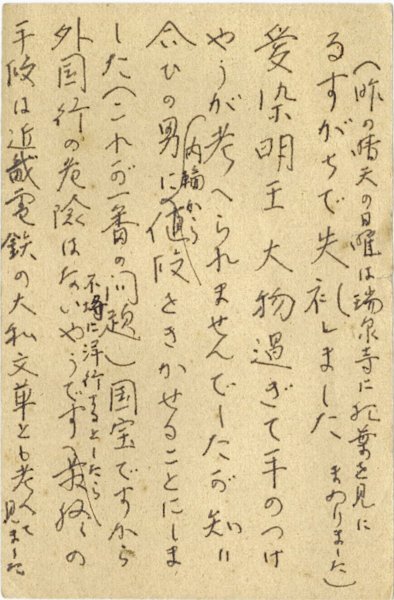 (昨の晴天の日曜は瑞泉寺に紅葉を見に
まゐりました)
るすがちで失礼しました
愛染明王 大物過ぎて手のつけ
やうが考へられませんでしたが 知り
合ひの男に(内輪から)値段をきかせることにしま
した(これが一番の問題)国宝ですから
外国行の危険はないやうです(最終の
不時に洋行するとしたら
手段は近畿電鉄の大和文華とも考へて
見ました